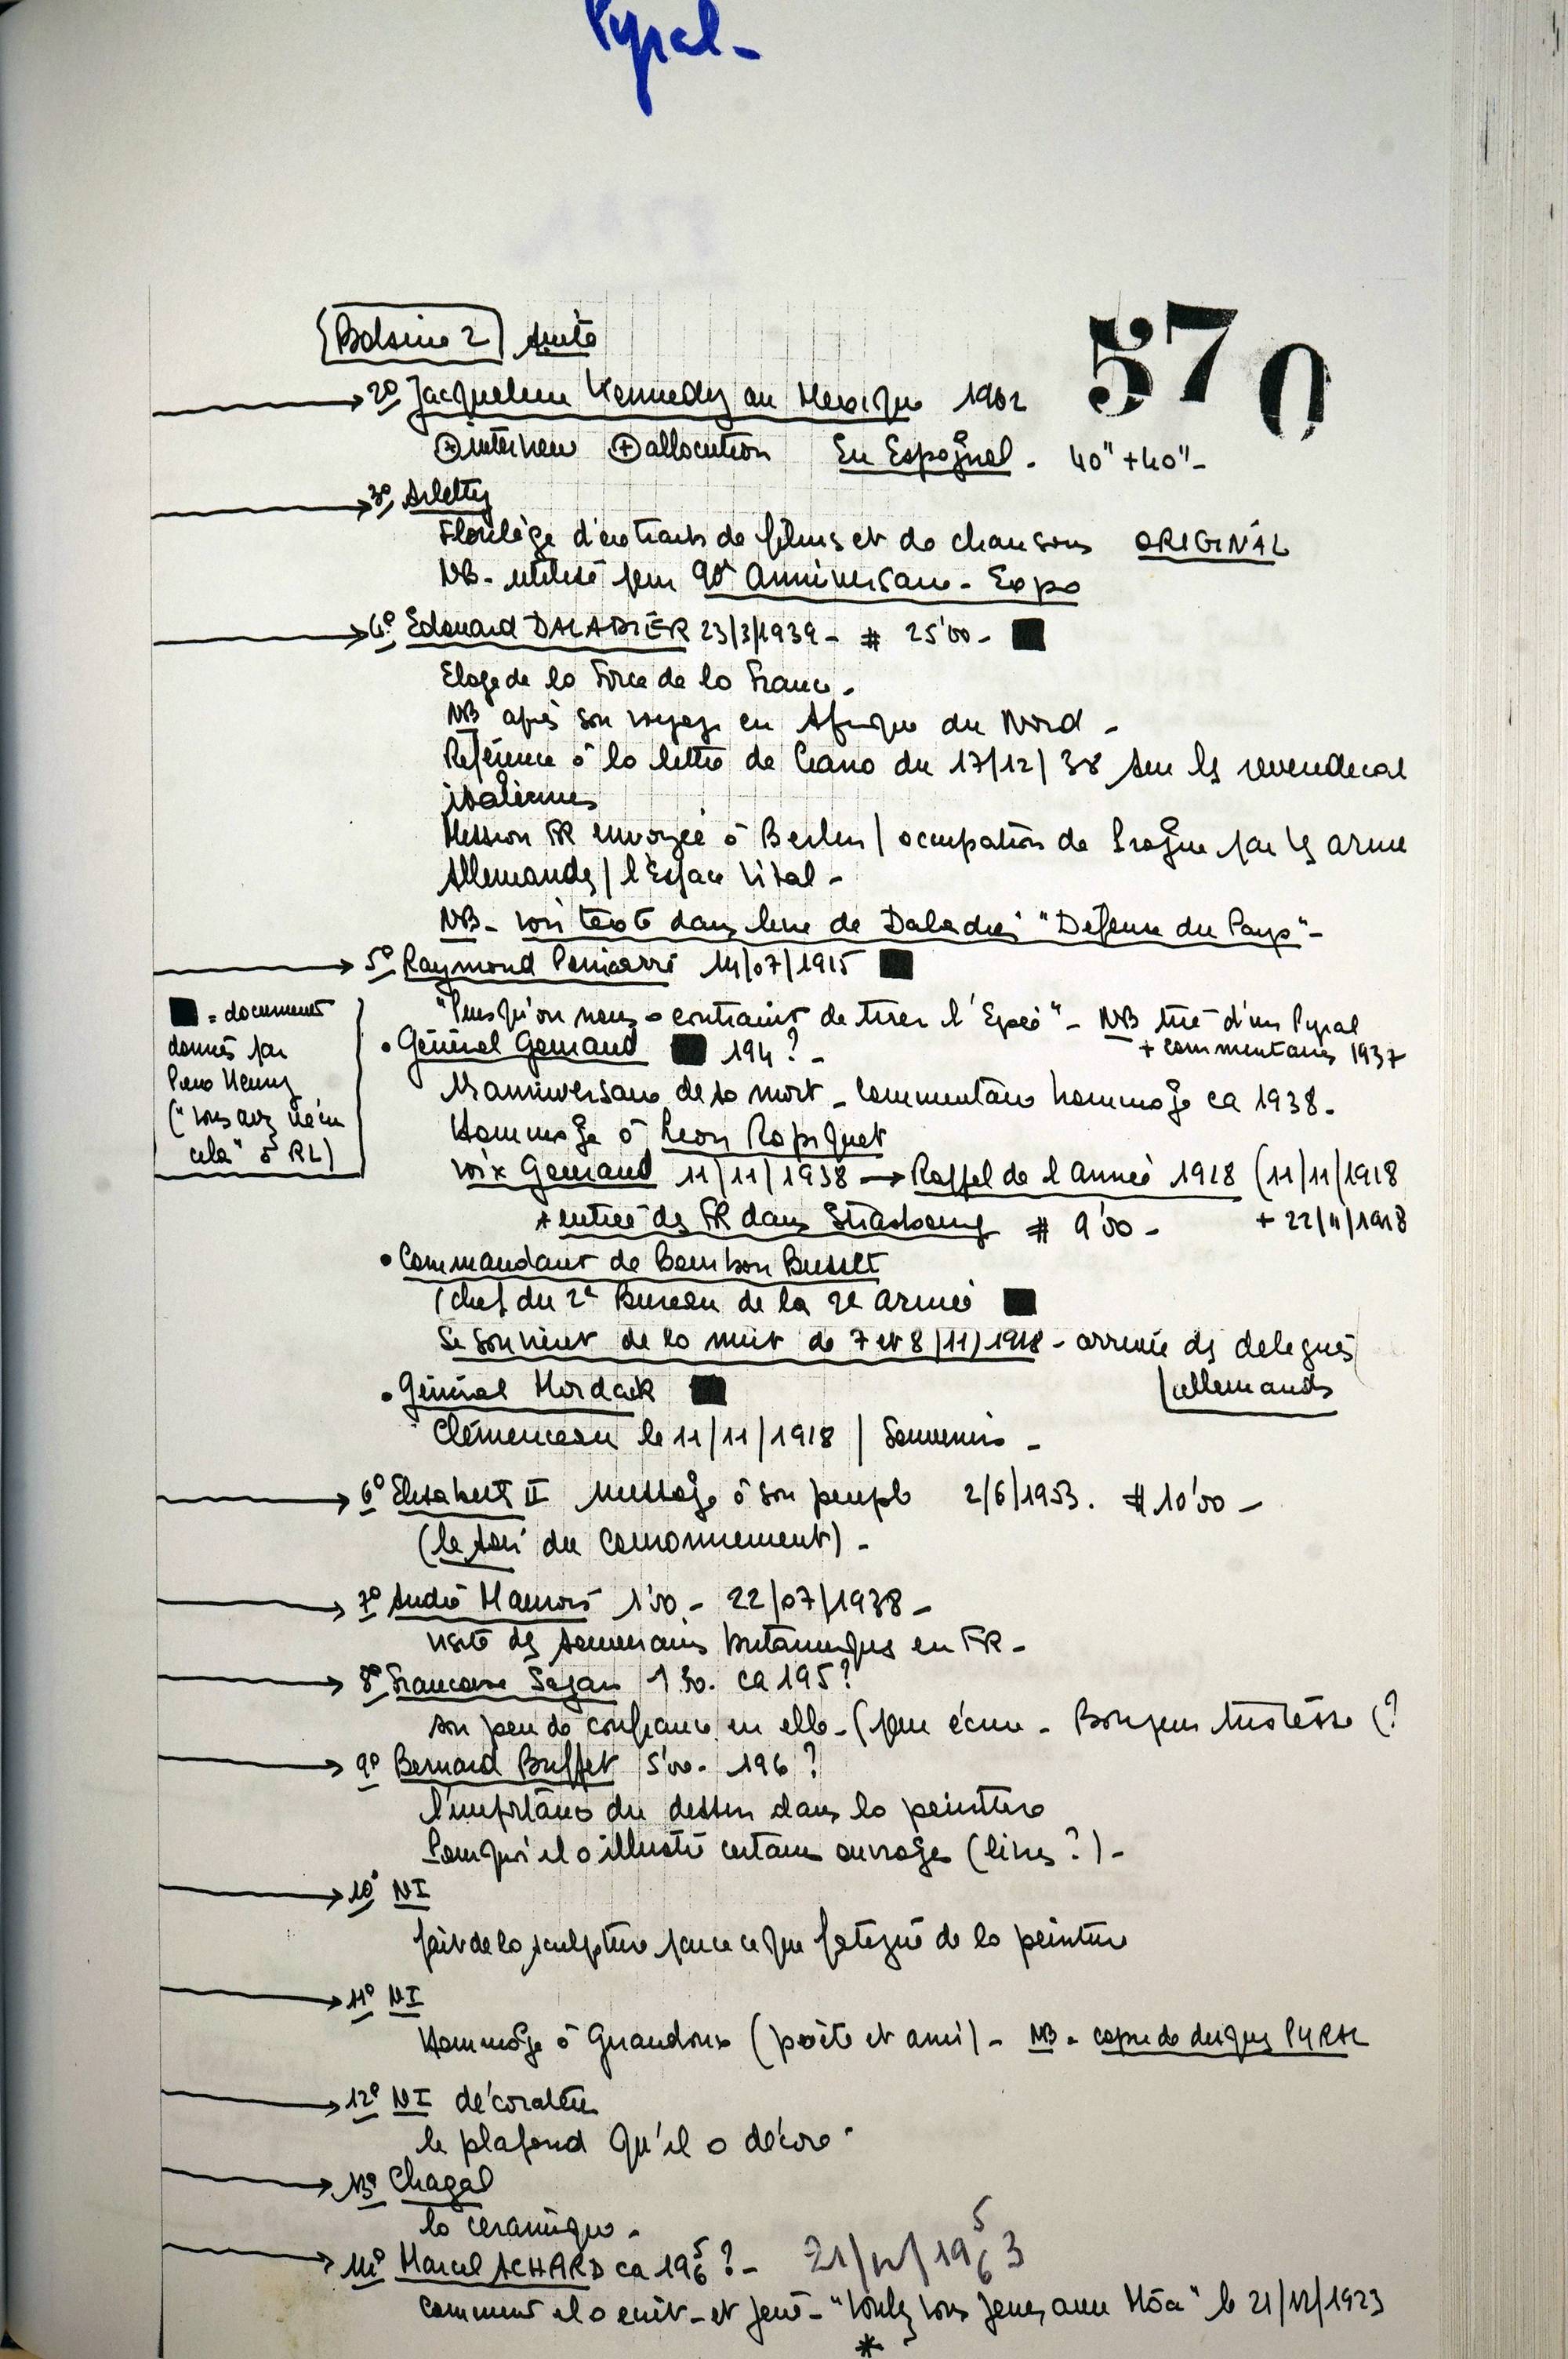 Pyral-
570
Bobine 2 suite
2° Jacqueline Kennedy au Mexique 1962
⊕ interview ⊕ allocution En Espagnol. 40"+40"-
3° Arletty
Florilège d'extraits de films et de chansons ORIGINAL
NB- utilisé pour 90° anniversaire - Expo
4° Edouard DALADIER 23/3/1939 - # 25'00 - ■
Eloge de la Force de la France.
NB après son voyage en Afrique du Nord -
Référence à la lettre de Ciano du 17/12/38 sur ls revendicat
italiennes
Mission FR envoyée à Berlin / occupation de Prague par ls armée
Allemandes / l'Espace Vital -
NB- voir texte dans livre de Daladier "Défense du Pays"-
5° Raymond Poincarré 14/07/1915 ■
"Puisqu'on nous a contraint de tirer l'Epée" - NB tiré d'un Pyral
+ commentaires 1937
■ = document
donnés par
Piero Heuny
("vous avez vécu
cela" à RL)
• Général Gouraud ■ 194? -
anniversaire de sa mort - commentaire hommage ca 1938.
Hommage à Leon
voix Gouraud 11/11/1938 → Rappel de l'année 1918 (11/11/1918
+ entrée ds FR dans Strasbourg # 9'00 - + 22/11/1918
• Commandant de Bourbon Busset
(chef du 2e Bureau de la 2e armée ■
Se souvient de la nuit de 7 et 8/11/1918 - arrivée ds delegués
allemands
• Général Mordack ■
Clémenceau le 11/11/1918 / Souvenirs -
6° Elisabeth II message à son peuple 2/6/1953. # 10'00 -
(le soir du couronnement) -
7° André Maurois 1'00 - 22/07/1938 -
visite ds souverains britanniques en FR -
8° Francoise Sagan 1'30. ca 195?
son peu de confiance en elle - (pour écrire - Bonjour tristesse (?
9° Bernard Buffet 5'00. 196?
l'importance du dessin dans la peinture
Pourquoi il a illustré certains ouvrages (livres?) -
10° NI
fait de la sculpture parce que fatigué de la peinture
11° NI
Hommage à Giraudoux (poète et ami) - NB - copie de disques PYRAL
12° NI décorateur
le plafond qu'il a décoré
13° Chagal
la ceramique -
14° Marcel ACHARD ca 196 5? - 21/12/196 5 3
comment il a écrit - et joué - "Voulez vous jouer avec Môa" le 21/12/1923
*